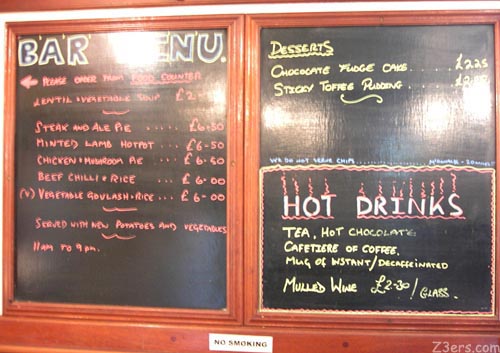 BAR MENU.
← PLEASE ORDER FROM FOOD COUNTER
LENTIL & VEGETABLE SOUP £2
STEAK AND ALE PIE .... £6-50
MINTED LAMB HOTPOT ... £6-50
CHICKEN & MUSHROOM PIE ... £6-50
BEEF CHILLI & RICE ... £6-00
(V) VEGETABLE GOULASH & RICE ... £6-00
SERVED WITH NEW POTATOES AND VEGETABLES
11AM TO 9PM.
DESSERTS
CHOCOLATE FUDGE CAKE ..... £2.25
STICKY TOFFEE PUDDING .....
WE DO NOT SERVE CHIPS
HOT DRINKS
TEA, HOT CHOCOLATE
CAFETIERE OF COFFEE.
MUG OF INSTANT/DECAFFEINATED
MULLED WINE £2-30/GLASS.
NO SMOKING
Z3ers.com